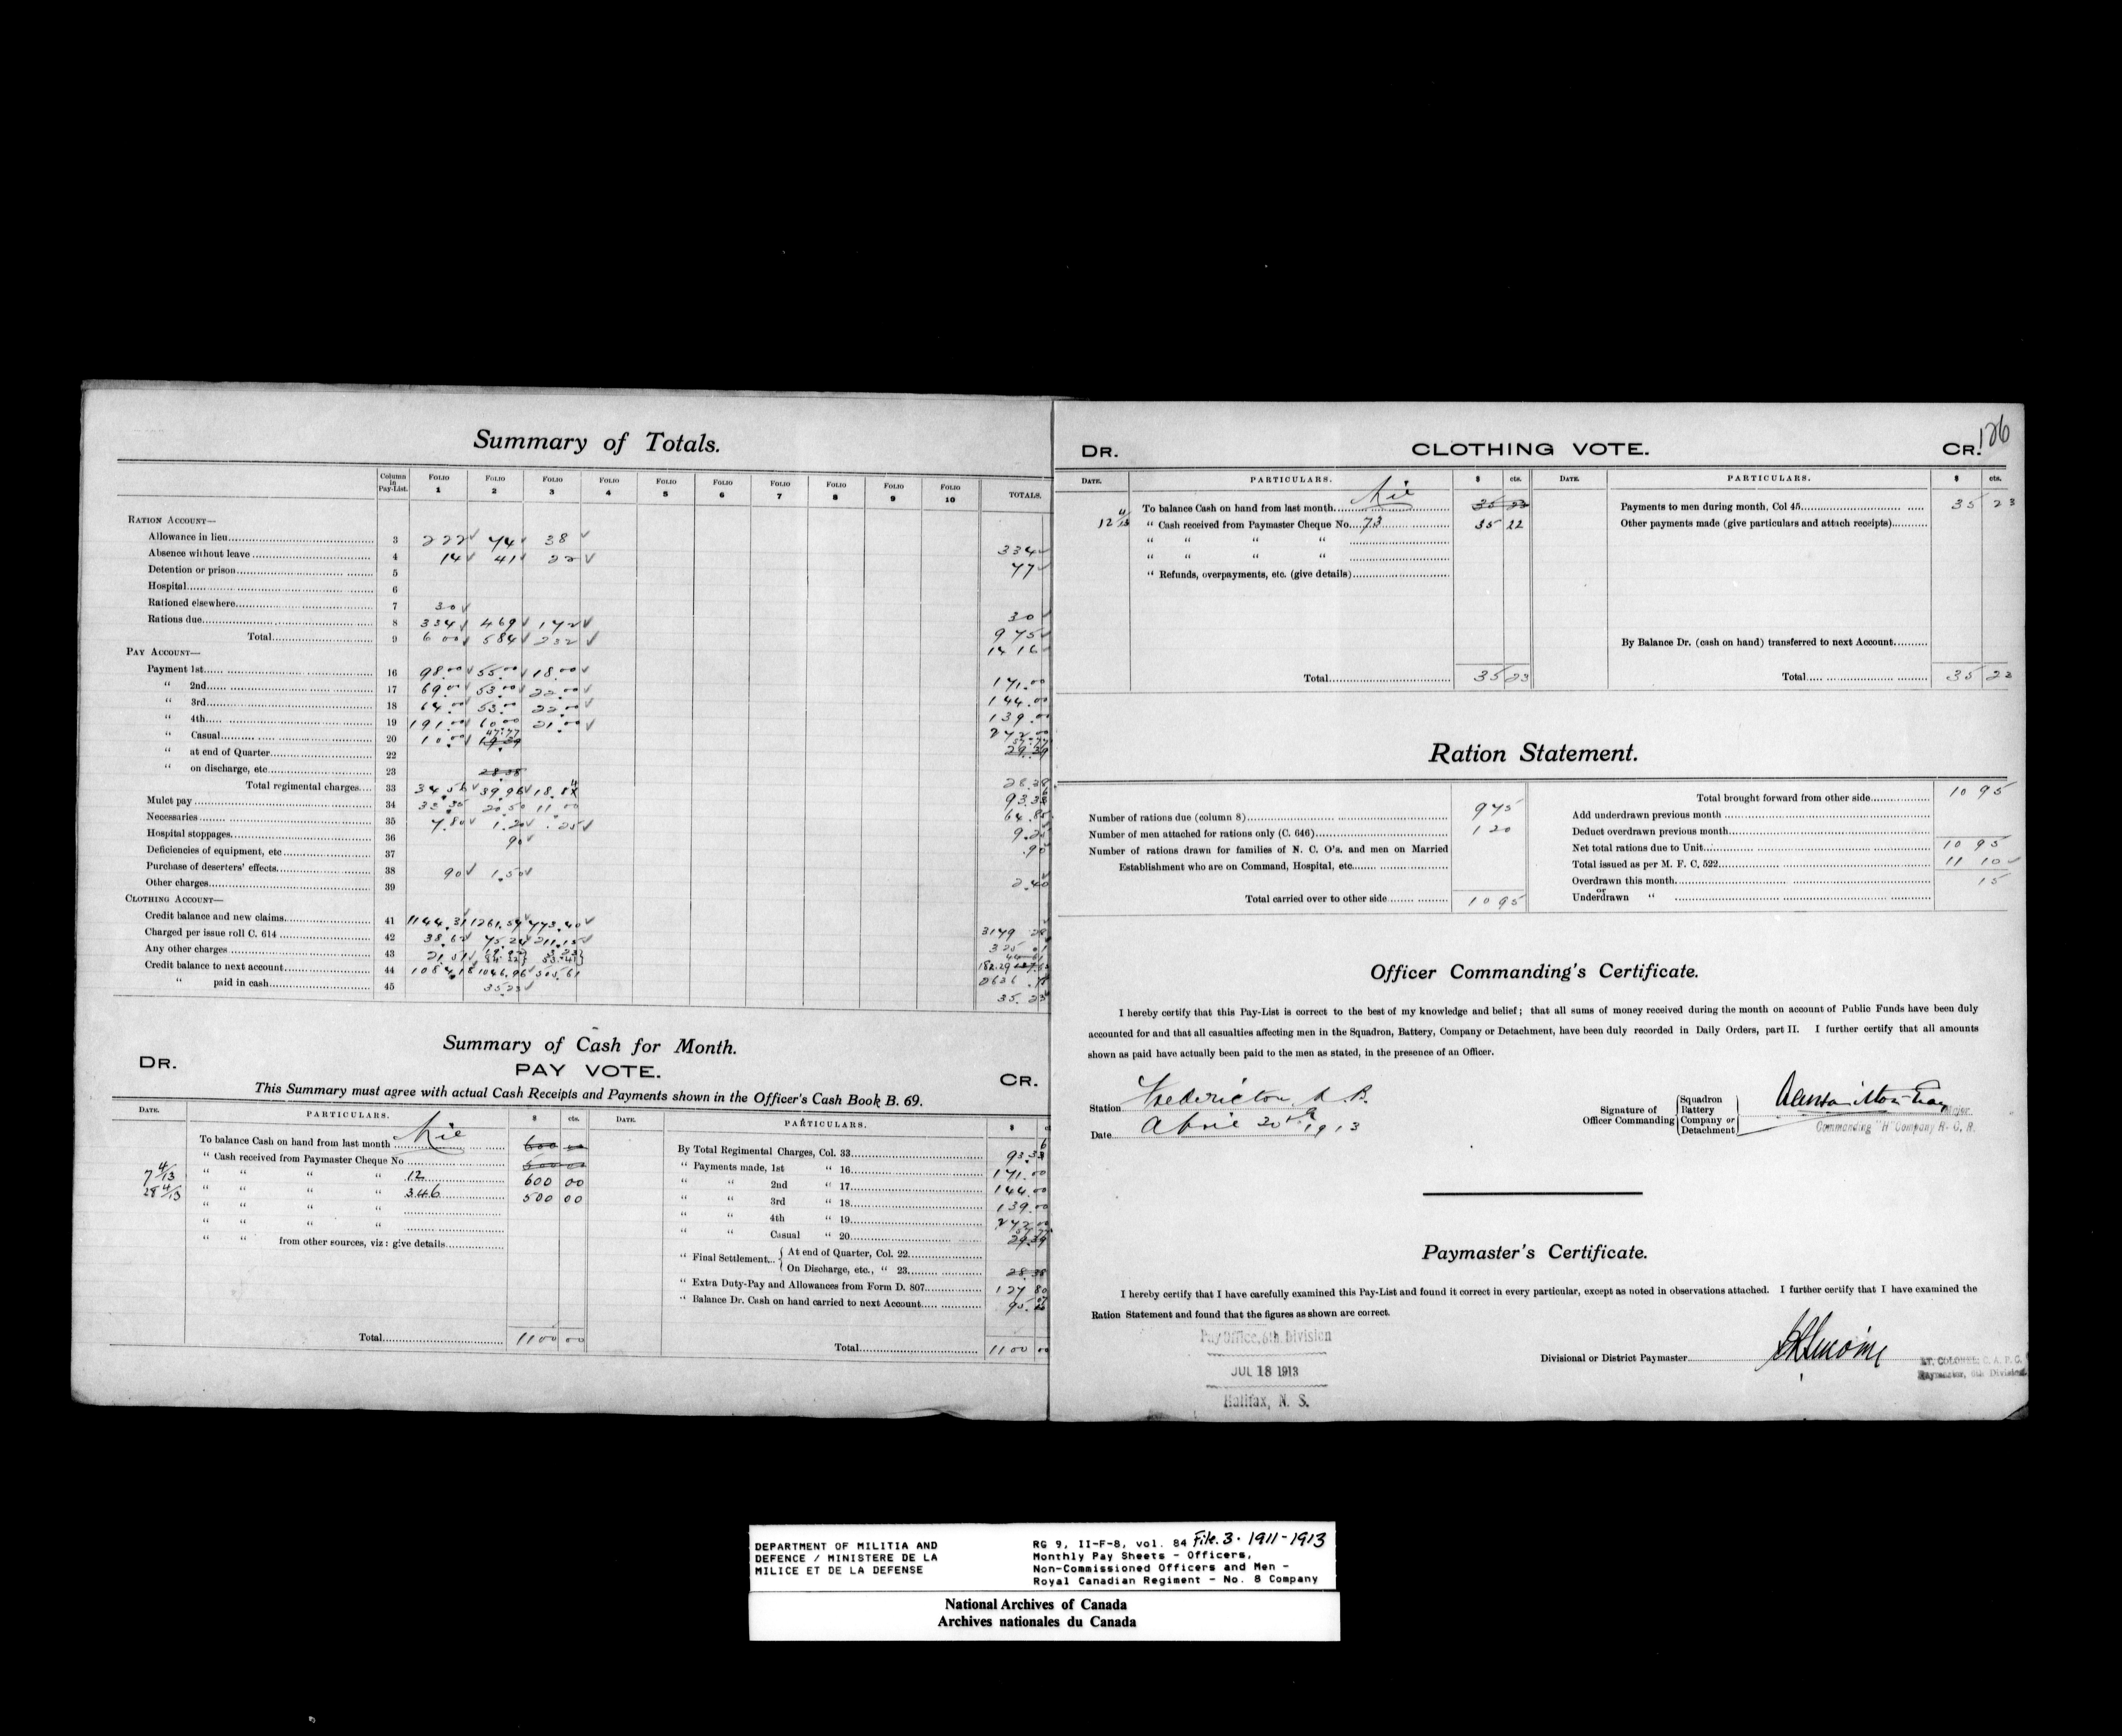 Summary of Totals.
Column in Pay-List. FOLIO 1 FOLIO 2 FOLIO 3 FOLIO 4 FOLIO 5 FOLIO 6 FOLIO 7 FOLIO 8 FOLIO 9 FOLIO 10 TOTALS.
RATION ACCOUNT—
Allowance in lieu 3 222 74 38 334
Absence without leave 4 14 41 22 77
Detention or prison 5
Hospital 6
Rationed elsewhere 7 30 30
Rations due 8 334 469 172 975
Total 9 600 584 232 1416
PAY ACCOUNT—
Payment 1st 16 98.00 55.00 18.00 171.00
" 2nd 17 69.00 53.00 22.00 144.00
" 3rd 18 64.00 53.00 22.00 139.00
" 4th 19 191.00 60.00 21.00 272.00
" Casual 20 10.00 47.77 19.39 57.77 29.39
" at end of Quarter 22
" on discharge, etc 23 28.38 28.38
Total regimental charges 33 34.56 39.96 18.8 93.3
Mulct pay 34 33.35 20.50 11.00 64.85
Necessaries 35 7.80 1.20 .25 9.25
Hospital stoppages 36 90 .90
Deficiencies of equipment, etc 37
Purchase of deserters' effects 38 90 1.50 2.40
Other charges 39
CLOTHING ACCOUNT—
Credit balance and new claims 41 1144.31 1261.57 773.40 3179 28
Charged per issue roll C. 614 42 38.62 75.24 211.15 325 01
Any other charges 43 21.51
Credit balance to next account 44 1084.18 1046.96 505.61 2636
" paid in cash 45 35.23 35.23
Summary of Cash for Month.
DR. PAY VOTE. CR.
This Summary must agree with actual Cash Receipts and Payments shown in the Officer's Cash Book B. 69.
DATE. PARTICULARS. $ cts. DATE. PARTICULARS. $
To balance Cash on hand from last month Nil 600 00
" Cash received from Paymaster Cheque No 500 00
7 4/13 " " " " 12 600 00
28 4/13 " " " " 346 500 00
" " " "
" " " "
" " from other sources, viz: give details
Total 1100 00
By Total Regimental Charges, Col. 33 93.3
" Payments made, 1st " 16 171.00
" " 2nd " 17 144.00
" " 3rd " 18 139.00
" " 4th " 19 272.00
" " Casual " 20 29.39
" Final Settlement { At end of Quarter, Col. 22
On Discharge, etc., " 23 28.38
" Extra Duty-Pay and Allowances from Form D. 807 127 80
" Balance Dr. Cash on hand carried to next Account 95.
Total 1100 00
126
DR. CLOTHING VOTE. CR.
DATE. PARTICULARS. $ cts. DATE. PARTICULARS. $ cts.
To balance Cash on hand from last month Nil 35 23
12 4/13 " Cash received from Paymaster Cheque No. 73 35 22
" " " "
" " " "
" Refunds, overpayments, etc. (give details)
Total 35 23
Payments to men during month, Col 45 35 23
Other payments made (give particulars and attach receipts)
By Balance Dr. (cash on hand) transferred to next Account
Total 35 23
Ration Statement.
Number of rations due (column 8) 975
Number of men attached for rations only (C. 646) 120
Number of rations drawn for families of N. C. O's. and men on Married
Establishment who are on Command, Hospital, etc
Total carried over to other side 1095
Total brought forward from other side 1095
Add underdrawn previous month
Deduct overdrawn previous month
Net total rations due to Unit 1095
Total issued as per M. F. C. 522 1110
Overdrawn this month 15
or
Underdrawn "
Officer Commanding's Certificate.
I hereby certify that this Pay-List is correct to the best of my knowledge and belief; that all sums of money received during the month on account of Public Funds have been duly
accounted for and that all casualties affecting men in the Squadron, Battery, Company or Detachment, have been duly recorded in Daily Orders, part II. I further certify that all amounts
shown as paid have actually been paid to the men as stated, in the presence of an Officer.
Station Fredericton N. B.
Date April 30th 1913
Signature of Officer Commanding { Squadron Battery Company or Detachment }
Major
Commanding "H" Company R. C. R.
Paymaster's Certificate.
I hereby certify that I have carefully examined this Pay-List and found it correct in every particular, except as noted in observations attached. I further certify that I have examined the
Ration Statement and found that the figures as shown are correct.
Pay Office, 6th Division
JUL 18 1913
Halifax, N. S.
Divisional or District Paymaster
LT. COLONEL C. A. P. C.
Paymaster, 6th Division.
DEPARTMENT OF MILITIA AND
DEFENCE / MINISTERE DE LA
MILICE ET DE LA DEFENSE
RG 9, II-F-8, vol. 84 File. 3. 1911-1913
Monthly Pay Sheets - Officers,
Non-Commissioned Officers and Men -
Royal Canadian Regiment - No. 8 Company
National Archives of Canada
Archives nationales du Canada